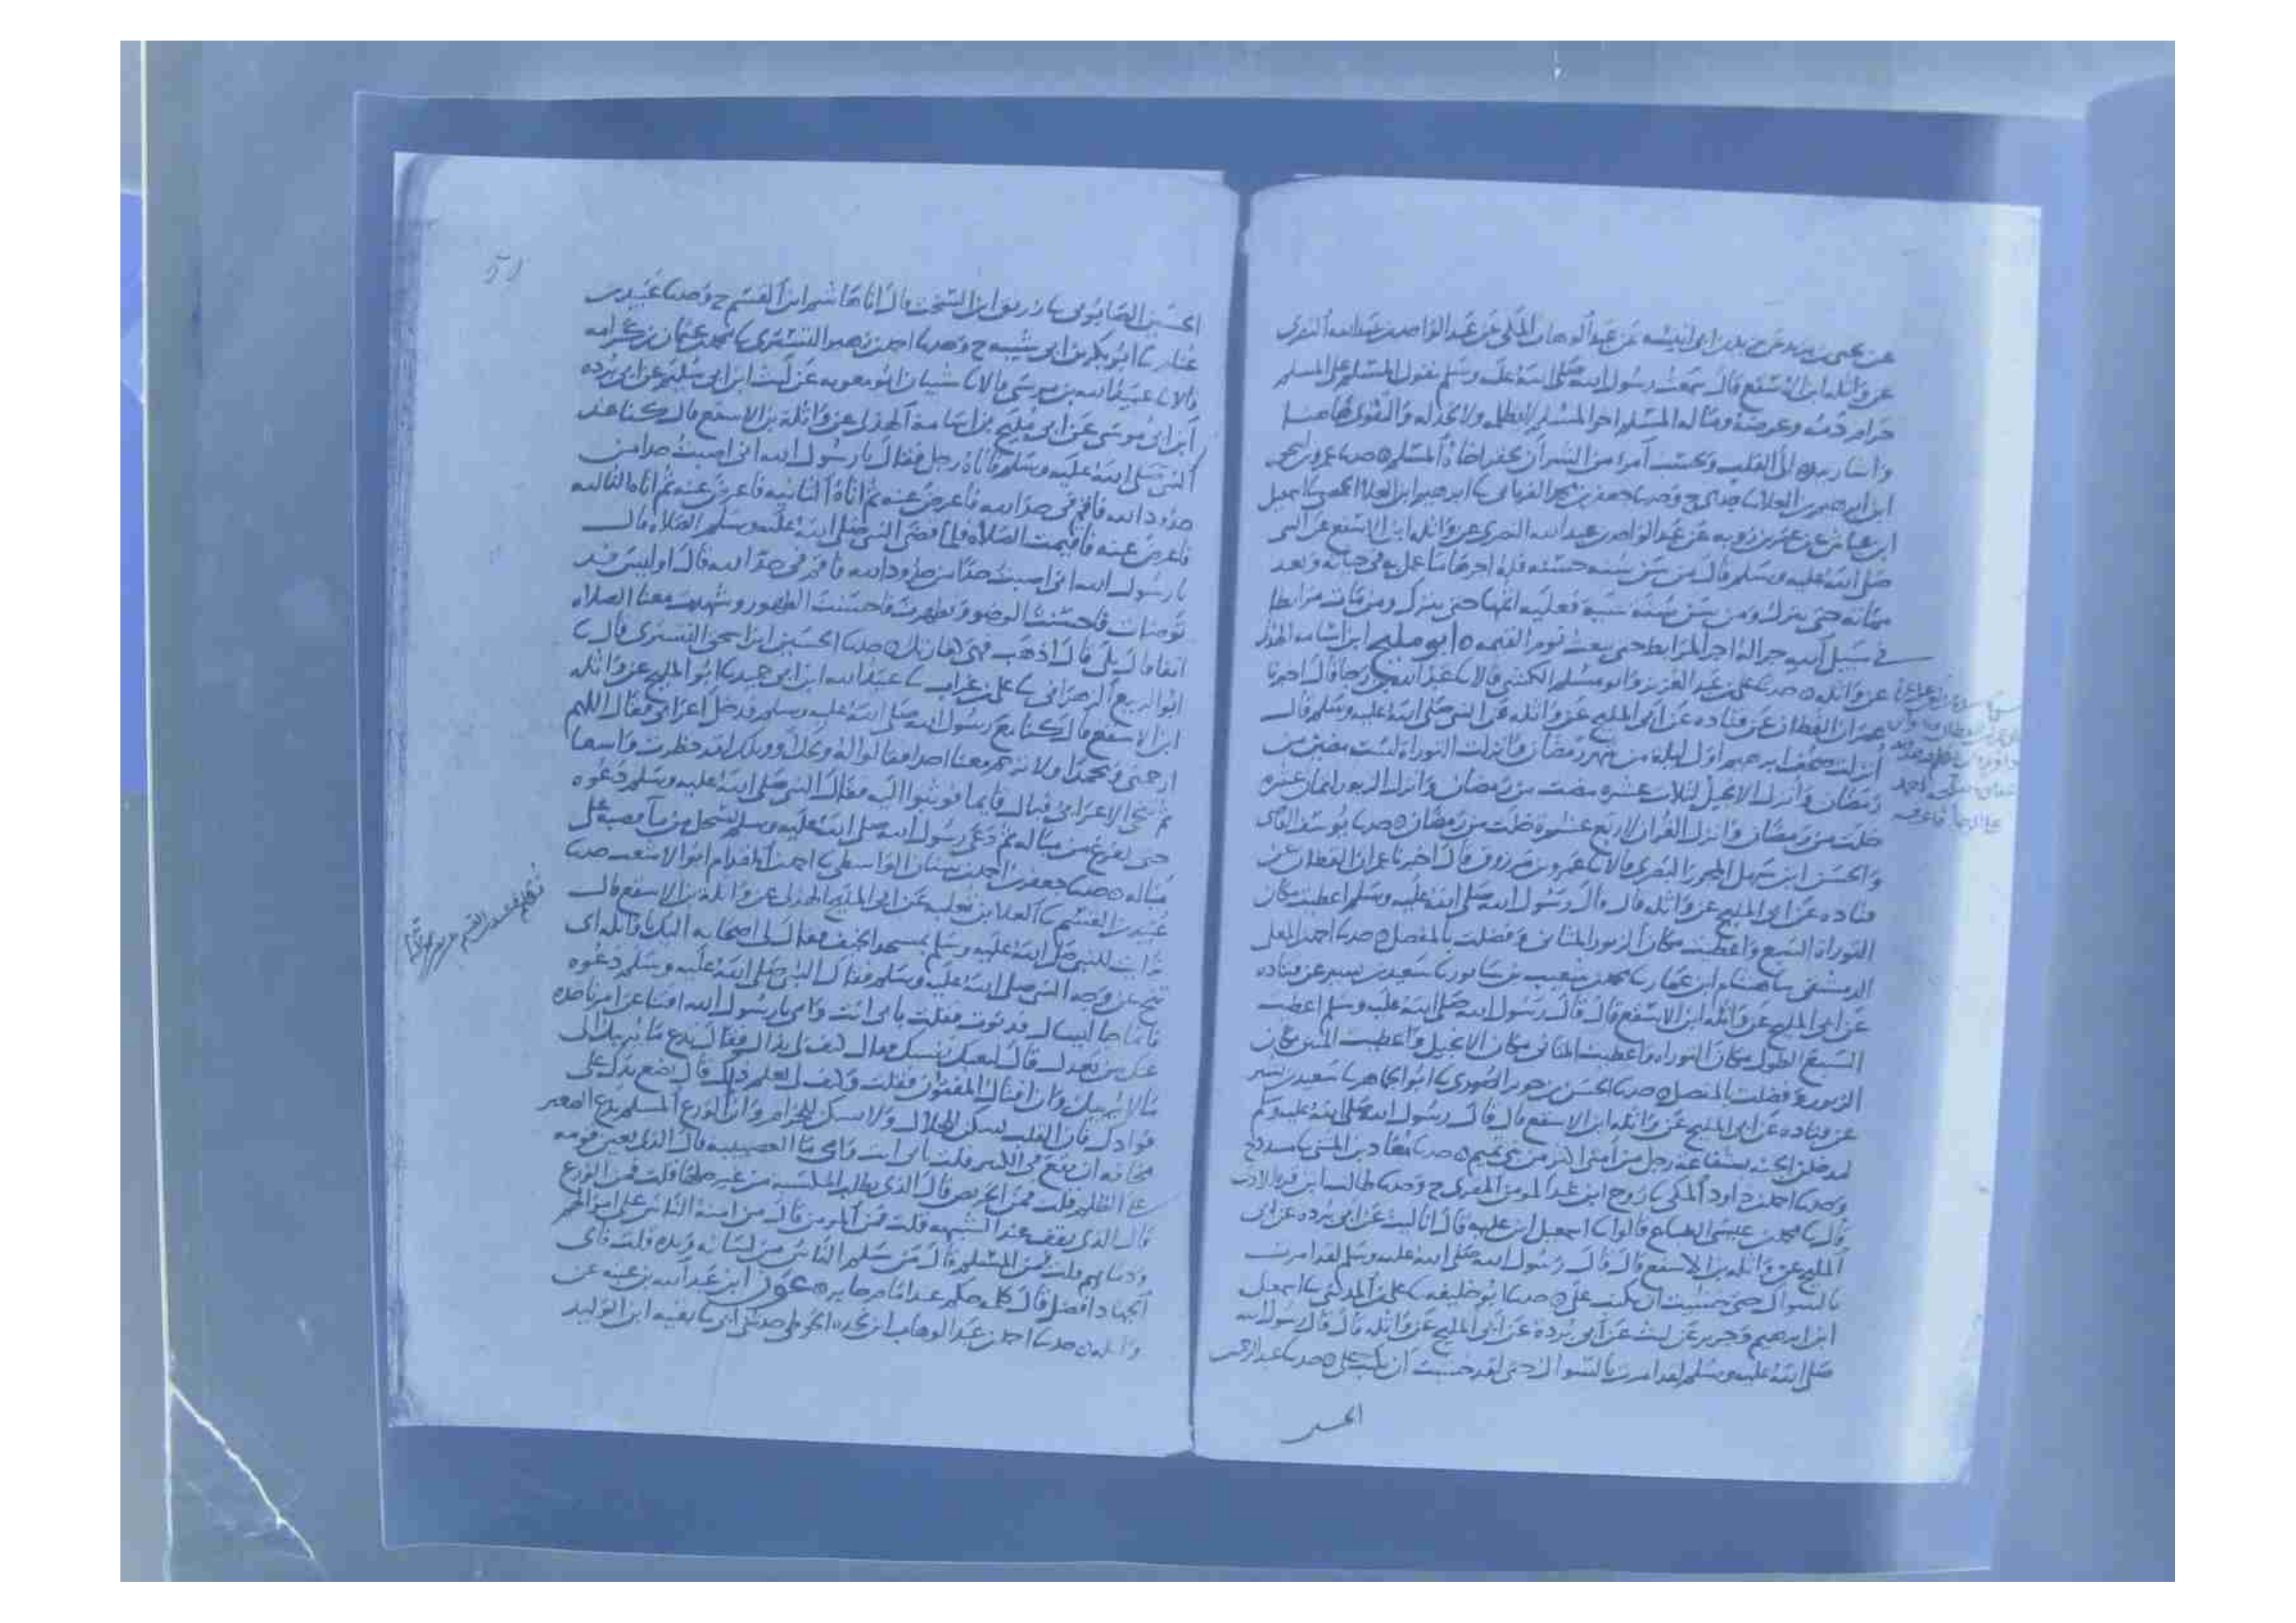 عن يحيى بن يزيد عن زيد بن ابى انيسه عن عبد الوهاب المكى عن عبد الواحد بن عبد الله النصرى
عن واثله ابن الاسقع قال سمعت رسول الله صلى الله عليه وسلم يقول المسلم على المسلم
حرام دمه وعرضه وماله المسلم اخو المسلم لا يظلمه ولا يخذله والتقوى هاهنا
واشار بيده الى القلب وبحسب امرء من الشر ان يحقر اخاه المسلم ٥ حدثنا عمرو بن اسحق
ابن ابرهيم بن العلا ثنا جدى ح وحدثنا جعفر بن محمد الفريابى ثنا ابرهيم ابن العلا الحمصى ثنا اسمعيل
ابن عياش عن عمر بن رويه عن عبد الواحد بن عبد الله النصرى عن واثله ابن الاسقع عن النبى
صلى الله عليه وسلم قال من سن سنه حسنه فله اجرها ما عمل به فى حياته وبعد
مماته حتى يترك ومن سن سنه سيه فعليه اثمها حتى يترك ومن مات مرابطا
فى سبيل الله جرا له اجر المرابط حتى يبعث يوم القيمه ٥ ابو مليح ابن اسامه الهذلى
عن واثله ٥ حدثنا على بن عبد العزيز وابو مسلم الكشى قالا ثنا عبد الله بن رجا قال اخبرنا
عمران القطان عن قتاده عن ابى المليح عن واثله عن النبى صلى الله عليه وسلم قال
أنزلت صحف ابرهيم اول ليلة من شهر رمضان وانزلت التوراة لست مضين من
رمضان وأنزل الانجيل لثلاث عشره مضت من رمضان وانزل الزبور لثمان عشره
خلت من رمضان وانزل القران لاربع عشرة خلت من رمضان ٥ حدثنا يوسف القاضى
والحسن ابن سهل المجوز البصرى قالا ثنا عمرو بن مرزوق قال اخبرنا عمران القطان عن
قتاده عن ابى المليح عن واثله قال قال رسول الله صلى الله عليه وسلم اعطيت مكان
التوراة السبع واعطيت مكان الزبور المثانى وفضلت بالمفصل ٥ حدثنا احمد بن المعلى
الدمشقى ثنا هشام ابن عمار ثنا محمد بن شعيب بن شابور ثنا سعيد بن بشير عن قتاده
عن ابى المليح عن واثله ابن الاسقع قال قال رسول الله صلى الله عليه وسلم اعطيت
السبع الطول مكان التوراة واعطيت المثانى مكان الانجيل واعطيت المئين مكان
الزبور وفضلت بالمفصل ٥ حدثنا الحسن بن جرير الصورى ثنا ابو الجماهر ثنا سعيد بن بشير
عن قتاده عن ابى المليح عن واثله ابن الاسقع قال قال رسول الله صلى الله عليه وسلم
ليدخلن الجنه بشفاعة رجل من أمتى اكثر من بنى تميم ٥ حدثنا معاذ بن المثنى ثنا مسدد ح
وحدثنا احمد بن داود المكى ثنا روح ابن عبد المومن المقرى ح وحدثنا طالب ابن قره الاذنى
قال ثنا محمد بن عيسى الطباع قالوا ثنا اسمعيل ابن عليه قال انا ليث عن ابى برده عن ابى
المليح عن واثله بن الاسقع قال قال رسول الله صلى الله عليه وسلم لقد امرت
بالسواك حتى خشيت ان يكتب على ٥ حدثنا ابو خليفه ثنا على بن المدينى ثنا اسمعيل
ابن ابرهيم وجرير عن ليث عن أبى بردة عن ابى المليح عن واثله قال قال رسول الله
صلى الله عليه وسلم لقد امرت بالسواك حتى لقد خشيت ان يكتب على ٥ حدثنا عبد الرحمن
الحسين الصابونى ثنا زريق ابن السخت قال انا هاشم ابن القسم ح وحدثنا عبيد بن
غنام ثنا ابو بكر بن ابى شيبه ح وحدثنا احمد بن زهير التسترى ثنا محمد بن عثمان بن كرامه
قالا ثنا عبيد الله بن موسى قالا ثنا شيبان ابو معويه عن ليث ابن ابى سليم عن ابى برده
ابن ابى موسى عن ابى مليح بن اسامة الهذلى عن واثلة بن الاسقع قال كنا عند
النبى صلى الله عليه وسلم فاتاه رجل فقال يا رسول الله انى اصبت حدا من
حدود الله فاقم فى حد الله فاعرض عنه ثم اتاه الثانيه فاعرض عنه ثم اتاه الثالثه
فاعرض عنه فاقيمت الصلاة فلما قضى النبى صلى الله عليه وسلم الصلاة قال
يا رسول الله انى اصبت حدا من حدود الله فاقم فى حد الله قال اوليس قد
توضات فاحسنت الوضو وتطهرت فاحسنت الطهور وشهدت معنا الصلاه
انفا قال بلى قال اذهب فهى كفارتك ٥ حدثنا الحسين ابن اسحق التسترى قال ثنا
ابو الربيع الزهرانى ثنا على بن غراب ثنا عبيد الله ابن ابى حميد ثنا ابو المليح عن واثله
ابن الاسقع قال كنا مع رسول الله صلى الله عليه وسلم فدخل اعرابى فقال اللهم
ارحمنى ومحمدا ولا ترحم معنا احدا فقالوا له ويحك او ويلك لقد حظرت واسعا
ثم تنحى الاعرابى فبال قايما فوثبوا اليه فقال النبى صلى الله عليه وسلم دعوه
حتى يفرغ من مباله ثم دعى رسول الله صلى الله عليه وسلم بسجل من ماء فصبه على
مباله ٥ حدثنا جعفر بن احمد بن سنان الواسطى ثنا احمد بن المقدام ابو الاشعث حدثنا
عبيد بن القسم ثنا العلا بن ثعلبه عن ابى المليح الهذلى عن واثلة بن الاسقع قال
تراايت للنبى صلى الله عليه وسلم بمسجد الخيف فقال لى اصحابه اليك يا واثله اى
تنح عن وجه النبى صلى الله عليه وسلم فقال النبى صلى الله عليه وسلم دعوه
فانما جا ليسال فدنوت فقلت بابى انت وامى يا رسول الله افتنا عن امر ناخذه
عنك من بعدك قال لتفتك نفسك فقال كيف لى بذاك فقال تدع ما يريبك الى
ما لا يريبك وان افتاك المفتون فقلت وكيف لى بعلم ذلك قال ضع يدك على
فوادك فان القلب يسكن للحلال ولا يسكن للحرام وان الورع المسلم يدع الصغير
مخافه ان يقع فى الكبير قلت بابى انت وامى ما العصبيه قال الذى يعين قومه
على الظلم قلت فمن الحريص قال الذى يطلب المكسبه من غير حلها قلت فمن الورع
قال الذى يقف عند الشبهه قلت فمن المومن قال من امنه الناس على اموالهم
ودمايهم قلت فمن المسلم قال من سلم الناس من لسانه ويده قلت فاى
الجهاد افضل قال كلمه حكم عند امام جاير ٥ عون ابن عبد الله بن عتبه عن
واثله ٥ حدثنا احمد بن عبد الوهاب ابن نجده الحوطى حدثنى ابى ثنا بقيه ابن الوليد